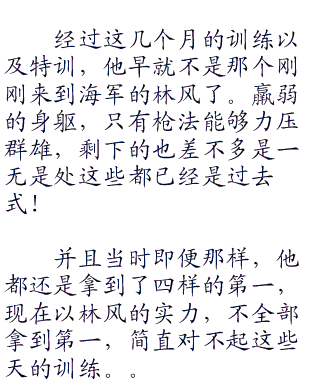 经过这几个月的训练以
及特训，他早就不是那个刚
刚来到海军的林风了。羸弱
的身躯，只有枪法能够力压
群雄，剩下的也差不多是一
无是处这些都已经是过去
式！
并且当时即便那样，他
都还是拿到了四样的第一，
现在以林风的实力，不全部
拿到第一，简直对不起这些
天的训练。。